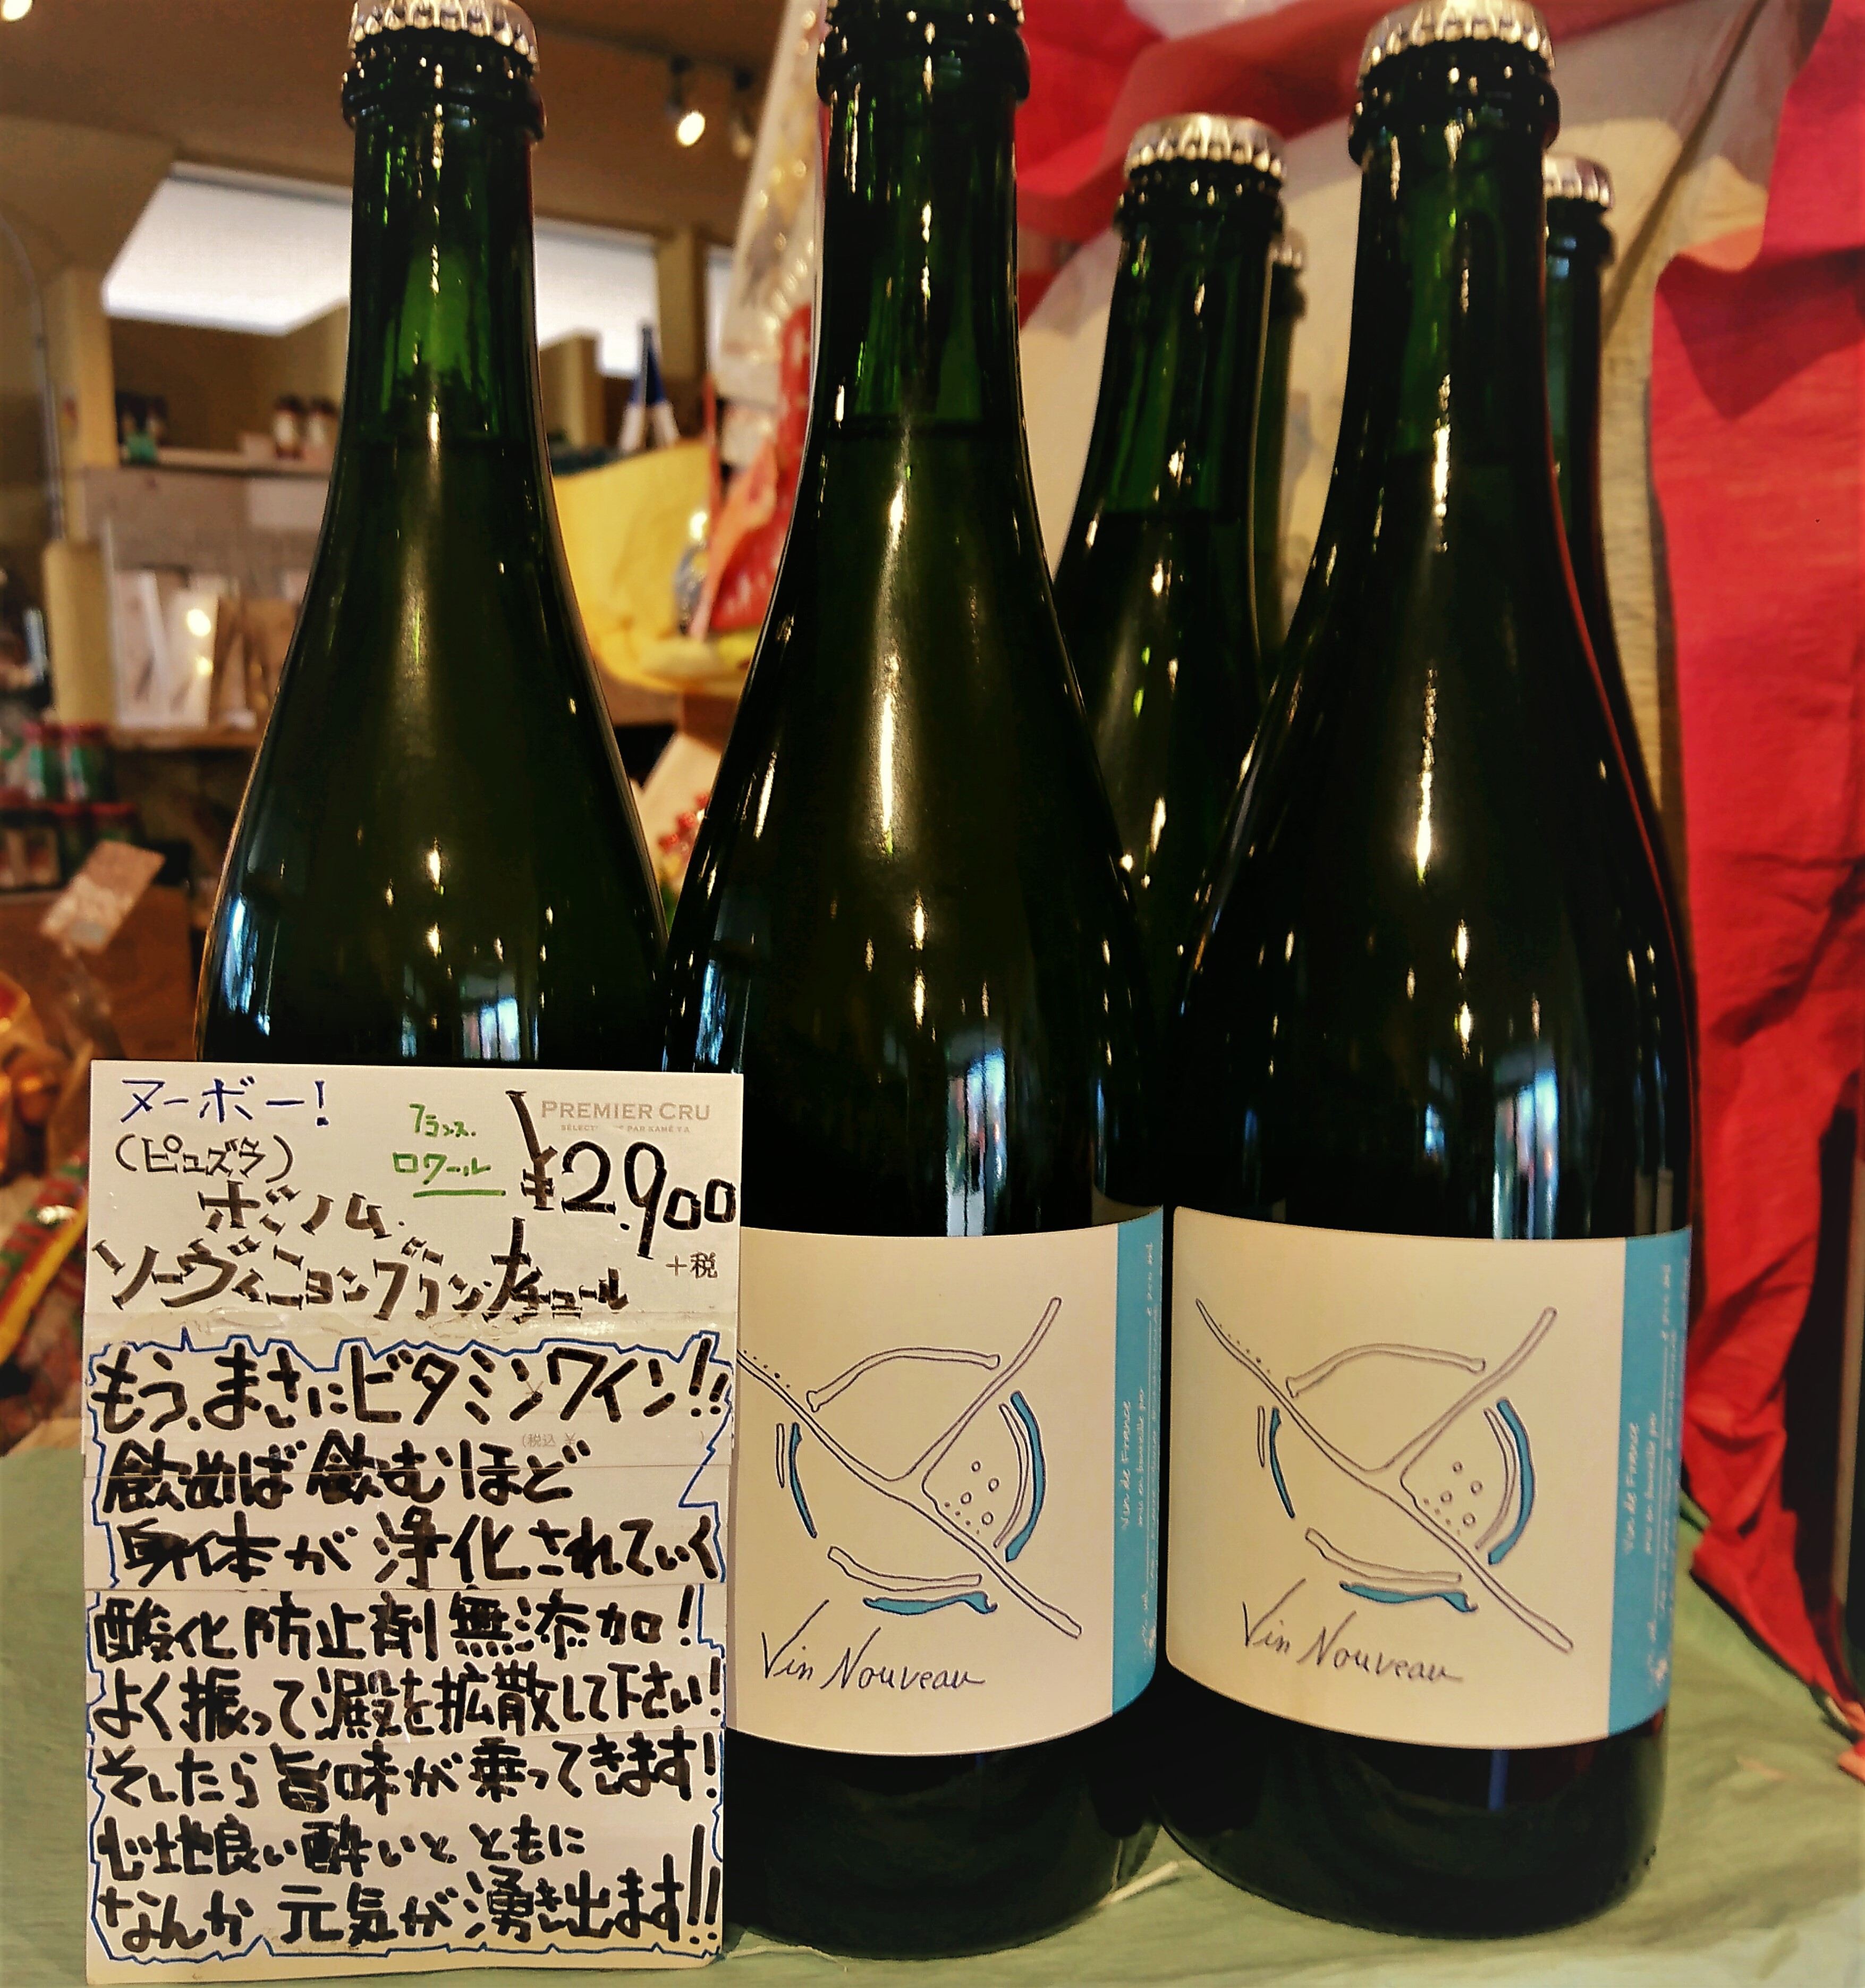 ヌーボー!
(ピュズラ)
フランス.
ロワール
PREMIER CRU
¥2.900
+税
ボノム.
ソーヴィニョンブラン.ナチュール
もう、まさにビタミンワイン!!
(税込 ¥ )
飲めば飲むほど
身体が浄化されていく
酸化防止剤無添加!
よく振って澱を拡散して下さい!
そしたら旨味が乗ってきます!
心地良い酔いとともに
なんか元気が湧き出ます!!
Vin Nouveau
Vin de France
mis en bouteille par
Vin Nouveau
Vin de France
mis en bouteille par